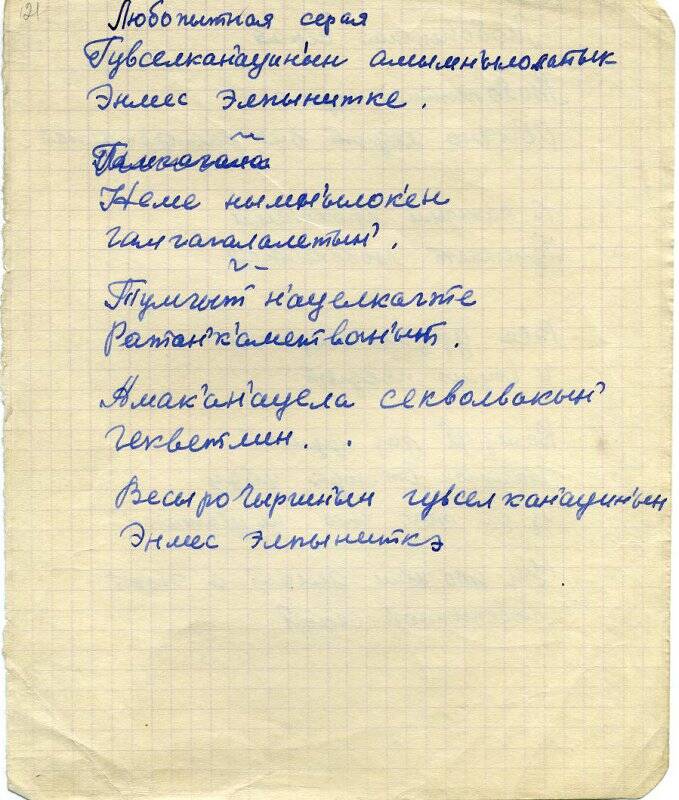 121
Любопытная серая
Гувселкан'ауин'ын амымн'ылолатык
Энмес Элпынитке.
Неме нымн'ылок'ен
гамгагалалетын'.
Тумгыт н'ауелкагте
Ратан'к'аметван'ыт.
Амак'ан'ауела секволвакын'
гекветлин. .
Весыро Чыргин'ын гувселкан'ауин'ын
Энмес Элпыниткэ